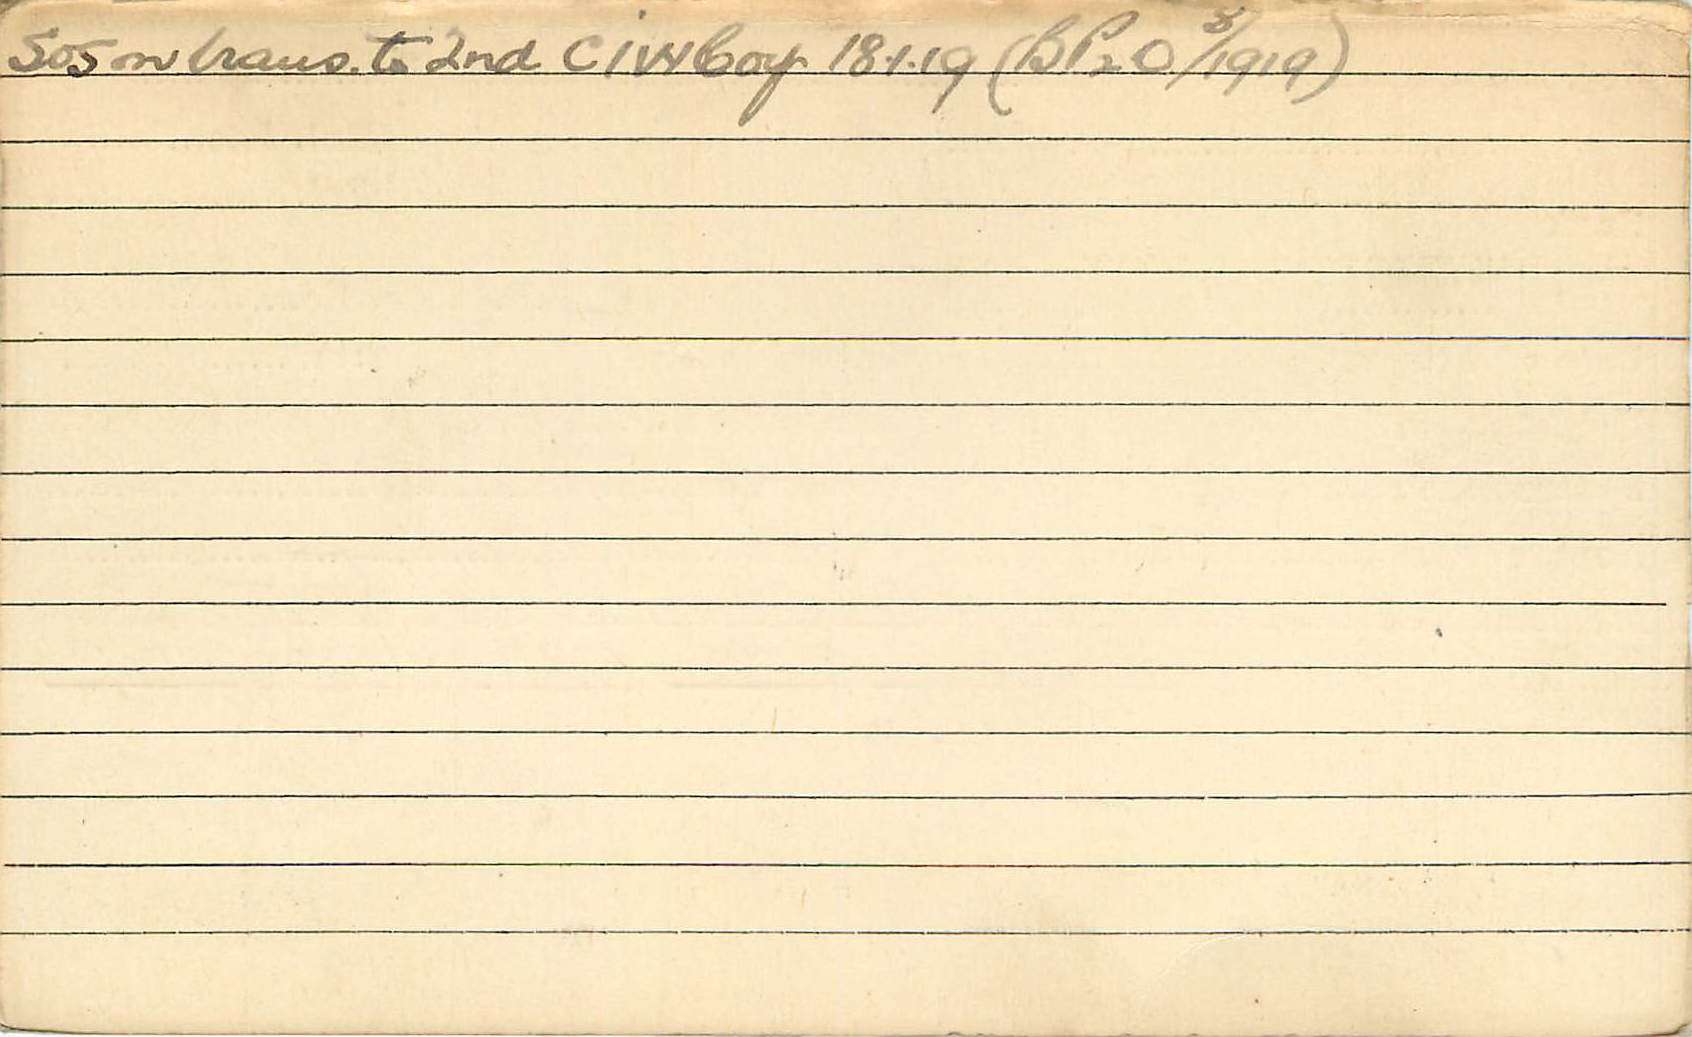 SOS on trans. to 2nd CIW Coy. 18.1.19 (B P2 O 8/1919)